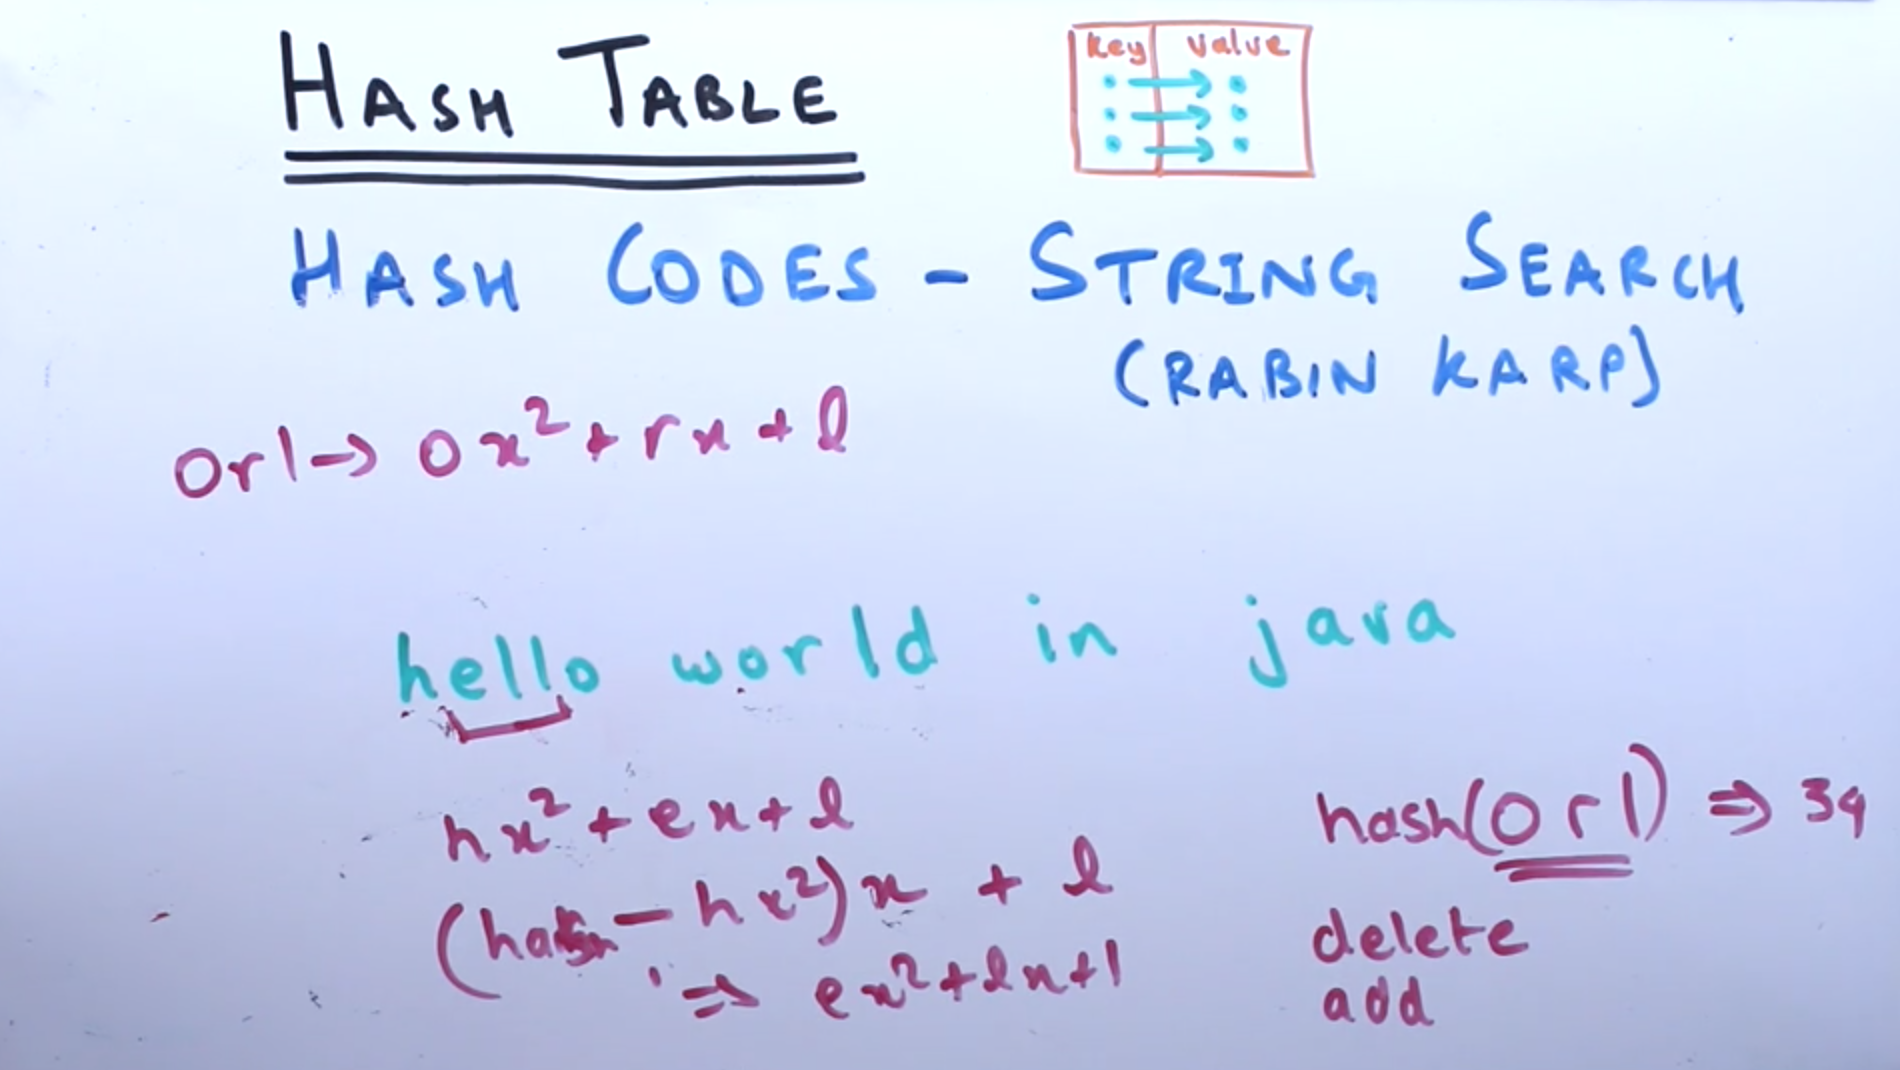 HASH TABLE
key value
HASH CODES - STRING SEARCH
(RABIN KARP)
orl → ox² + rx + l
hello world in java
hx² + ex + l
(hash - hx²)x + l
⇒ ex² + lx + l
hash(orl) ⇒ 39
delete
add